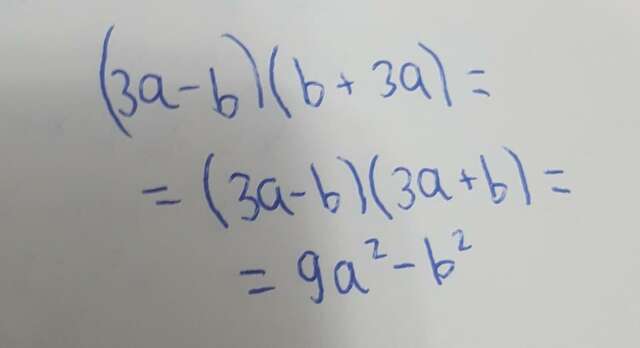 (3a-b)(b+3a)=
=(3a-b)(3a+b)=
=9a²-b²